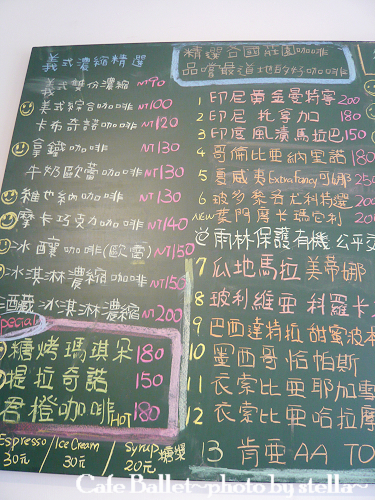 義式濃縮精選
義式雙份濃縮 NT90
美式綜合咖啡 NT100
卡布奇諾咖啡 NT120
拿鐵咖啡 NT130
牛奶歐蕾咖啡 NT130
維也納咖啡 NT130
摩卡巧克力咖啡 NT140
冰釀咖啡(歐蕾) NT150
冰淇淋濃縮咖啡 NT150
酒藏冰淇淋濃縮 NT200
pecial
糖烤瑪琪朵 180
堤拉奇諾 150
君橙咖啡 HOT 180
Espresso 30元 / Ice Cream 30元 / Syrup 糖漿 20元
精選各國莊園咖啡
品嚐最道地的好咖啡
1 印尼黃金曼特寧 200
2 印尼托拿加 180
3 印度風漬馬拉巴 150
4 哥倫比亞納里諾 180
5 夏威夷 Extra Fancy 可娜 250
6 波多黎各尤利特選 200
NEW 葉門摩卡瑪它利 200
雨林保護有機公平交
7 瓜地馬拉美蒂娜
8 玻利維亞科羅卡
9 巴西達特拉甜蜜波
10 墨西哥恰帕斯
11 衣索比亞耶加雪
12 衣索比亞哈拉摩
13 肯亞AA TO
Cafe Ballet~photo by stella~